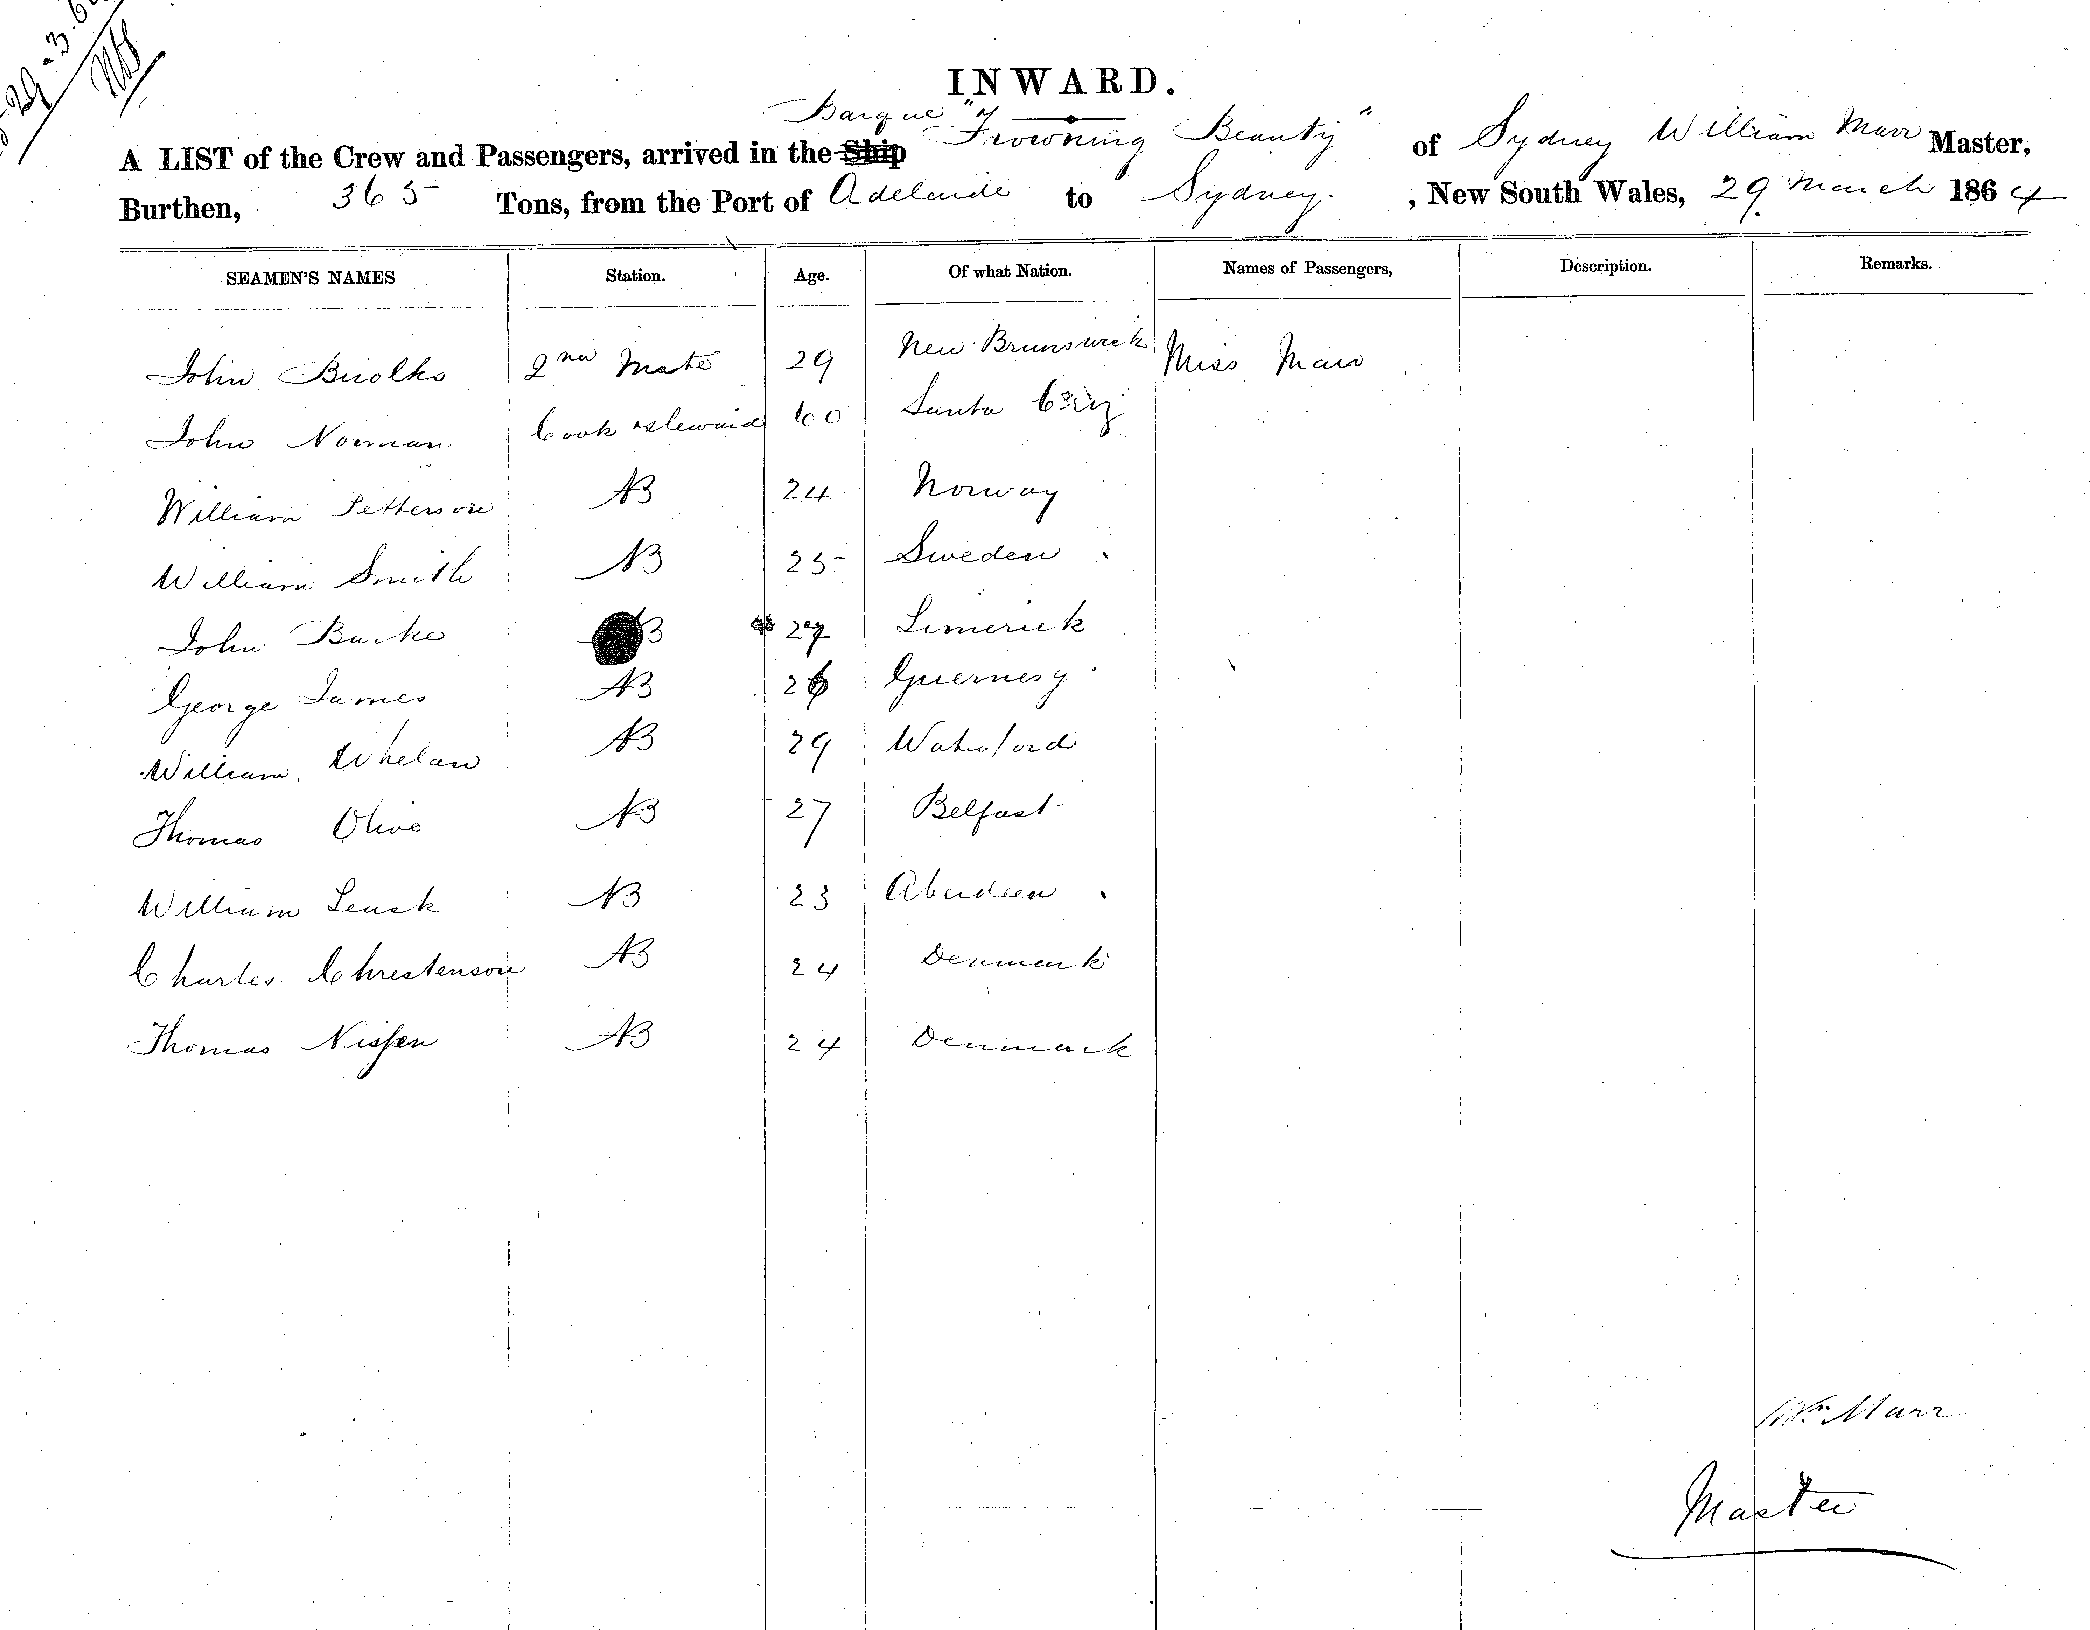 29-3.6
INWARD.
Barque "Frowning Beauty"
A LIST of the Crew and Passengers, arrived in the Ship of Sydney William Marr Master,
Burthen, 365 Tons, from the Port of Adelaide to Sydney. , New South Wales, 29 March 1864
SEAMEN'S NAMES Station. Age. Of what Nation. Names of Passengers, Description. Remarks.
John 2nd Mate 29 New Brunswick Miss Marr
John Norman Cook & Steward 60 Santa Cruz
William Petterson AB 24 Norway
William Smith AB 25 Sweden
John Burke AB 27 Limerick
George James AB 26 Guernesy
William Whelan AB 29 Waterford
Thomas Olive AB 27 Belfast
William Leask AB 23 Aberdeen
Charles Chrestenson AB 24 Denmark
Thomas Nissen AB 24 Denmark
Wm. Marr
Master